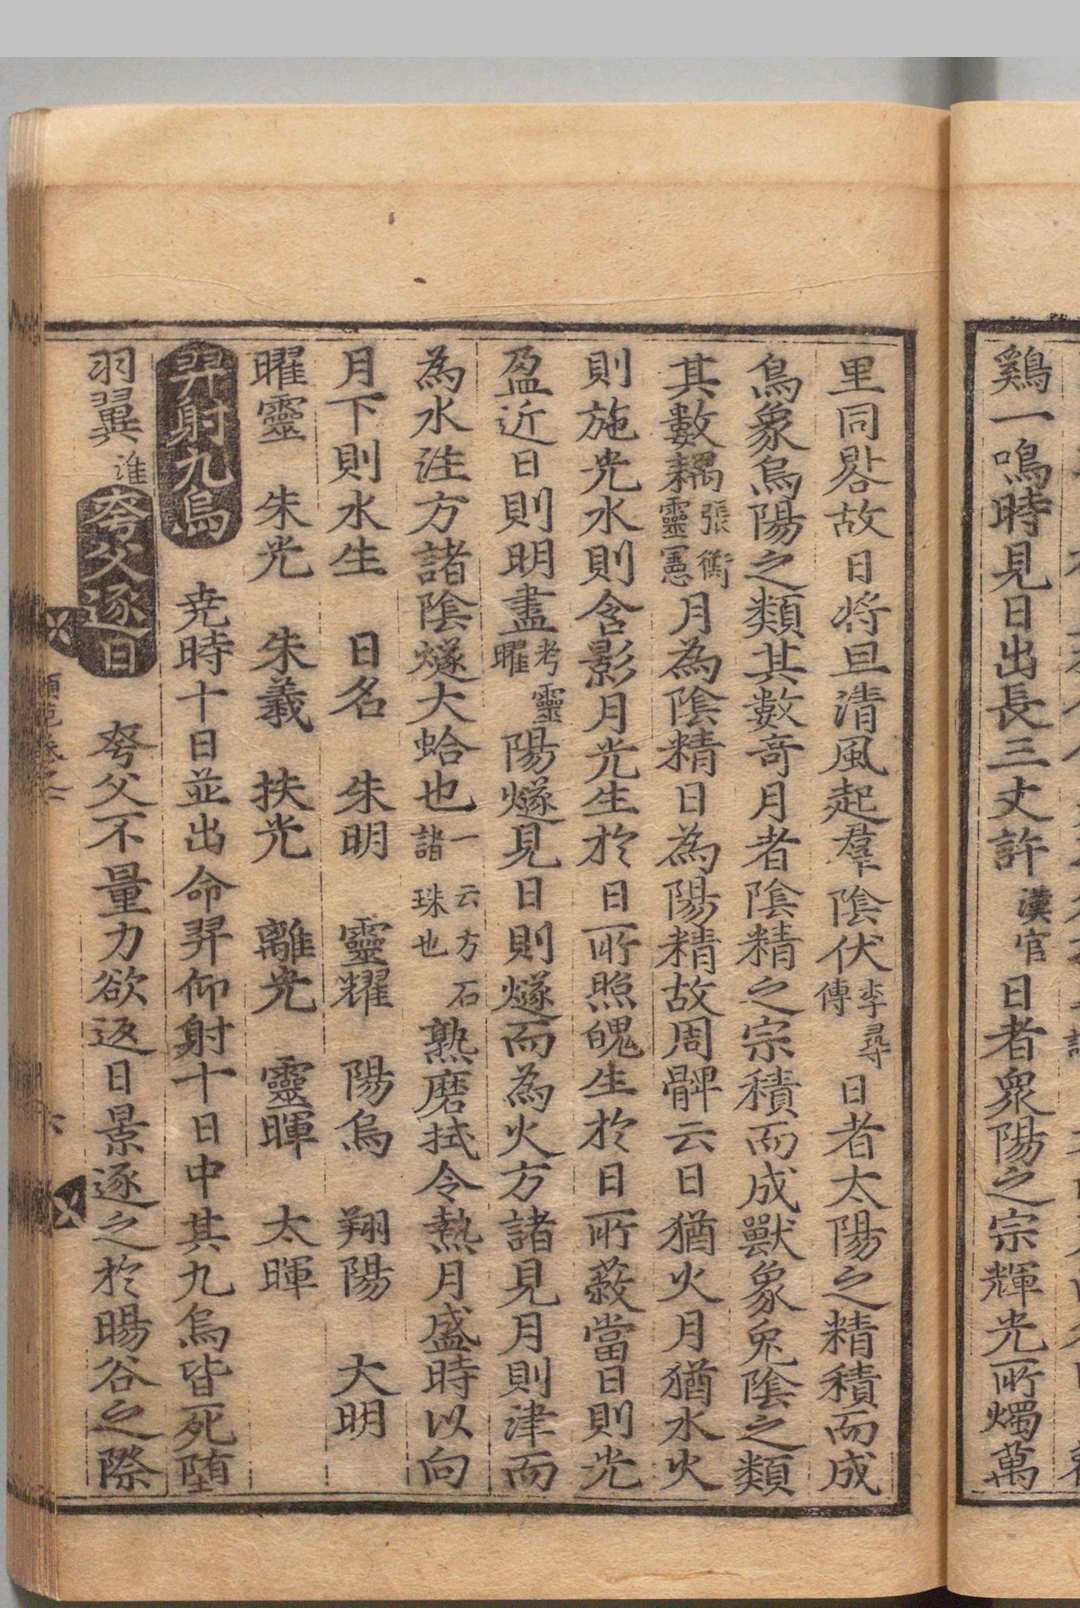 鷄一鳴時見日出長三丈許漢官日者衆陽之宗輝光所燭萬
里同晷故日將旦清風起羣陰伏李尋傳日者太陽之精積而成
鳥象烏陽之類其數奇月者陰精之宗積而成獸象兔陰之類
其數耦張衡靈憲月為陰精日為陽精故周髀云日猶火月猶水火
則施光水則含影月光生於日所照魄生於日所蔽當日則光
盈近日則明盡考靈曜陽燧見日則燧而為火方諸見月則津而
為水注方諸陰燧大蛤也一云方石諸珠也熟磨拭令熱月盛時以向
月下則水生 日名 朱明 靈耀 陽烏 翔陽 大明
曜靈 朱光 朱羲 扶光 離光 靈暉 太暉
羿射九烏 堯時十日並出命羿仰射十日中其九烏皆死墮
羽翼淮夸父逐日 夸父不量力欲返日景逐之於暘谷之際